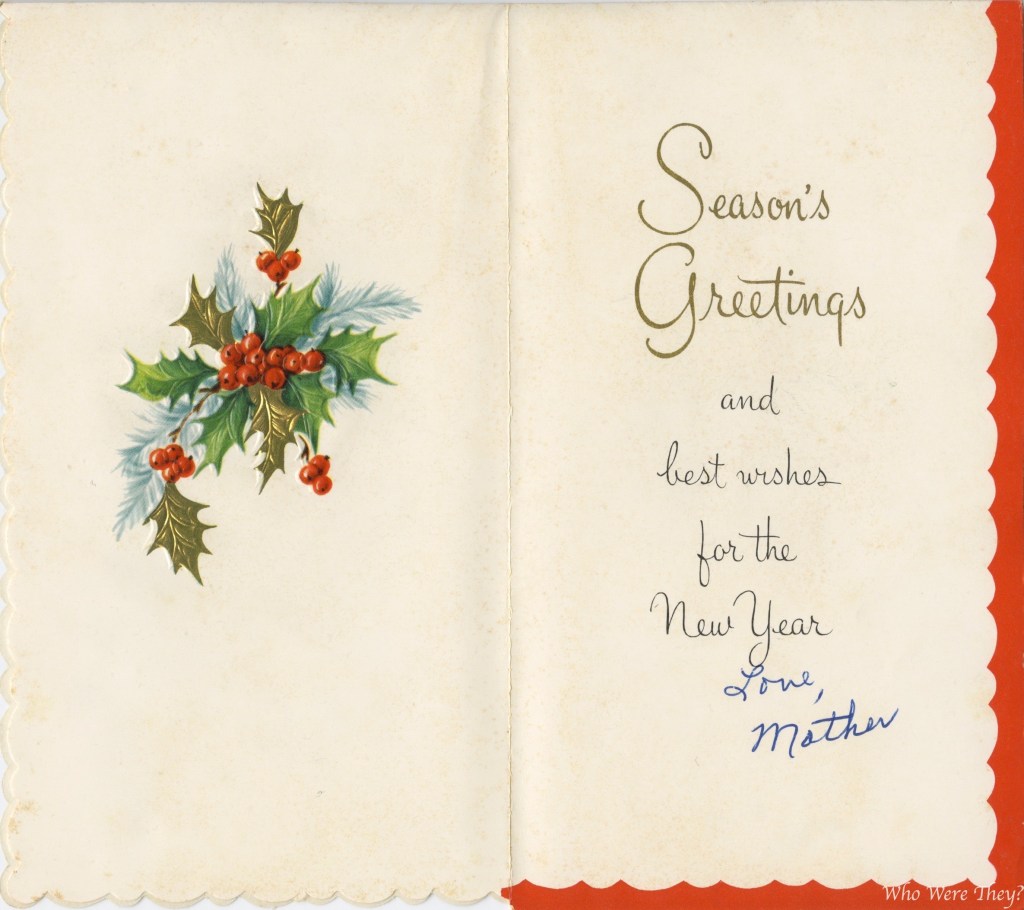 Season's
Greetings
and
best wishes
for the
New Year
Love,
Mother
Who Were They?